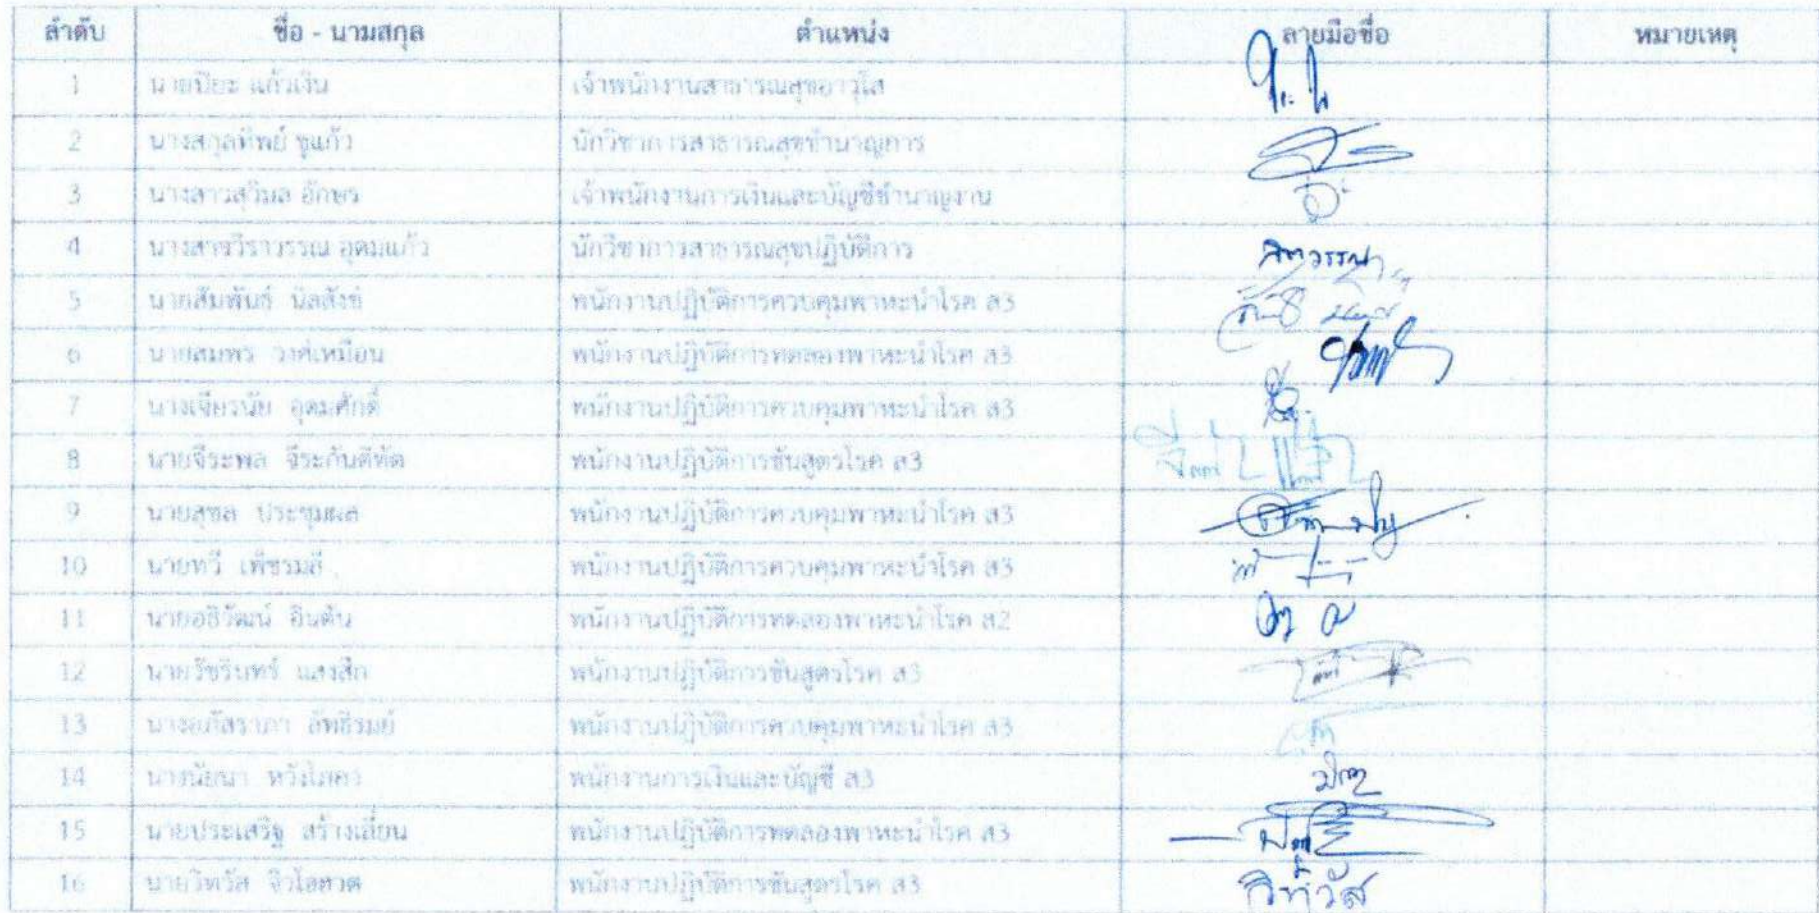 ลำดับ ชื่อ - นามสกุล ตำแหน่ง ลายมือชื่อ หมายเหตุ
1 นายปิยะ แก้วเงิน เจ้าพนักงานสาธารณสุขอาวุโส
2 นางสกุลทิพย์ ชูแก้ว นักวิชาการสาธารณสุขชำนาญการ
3 นางสาวสุวิมล อักษร เจ้าพนักงานการเงินและบัญชีชำนาญงาน
4 นางสาววิราวรรณ อุดมแก้ว นักวิชาการสาธารณสุขปฏิบัติการ
5 นายสัมพันธ์ นิลสังข์ พนักงานปฏิบัติการควบคุมพาหะนำโรค ส3
6 นายสมพร วงศ์เหมือน พนักงานปฏิบัติการทดลองพาหะนำโรค ส3
7 นางเจียรนัย อุดมศักดิ์ พนักงานปฏิบัติการควบคุมพาหะนำโรค ส3
8 นายจีระพล จีระกันตีทัต พนักงานปฏิบัติการชันสูตรโรค ส3
9 นายสุชล ประชุมผล พนักงานปฏิบัติการควบคุมพาหะนำโรค ส3
10 นายทวี เพ็ชรมลี พนักงานปฏิบัติการควบคุมพาหะนำโรค ส3
11 นายอธิวัฒน์ อินต้น พนักงานปฏิบัติการทดลองพาหะนำโรค ส2
12 นายวัชรินทร์ แสงสึก พนักงานปฏิบัติการชันสูตรโรค ส3
13 พนักงานปฏิบัติการควบคุมพาหะนำโรค ส3
14 นางนัยนา หวังโภคา พนักงานการเงินและบัญชี ส3
15 นายประเสริฐ สร้างเลี่ยน พนักงานปฏิบัติการทดลองพาหะนำโรค ส3
16 นายวิทวัส จิวโอสวด พนักงานปฏิบัติการชันสูตรโรค ส3 วิทวัส